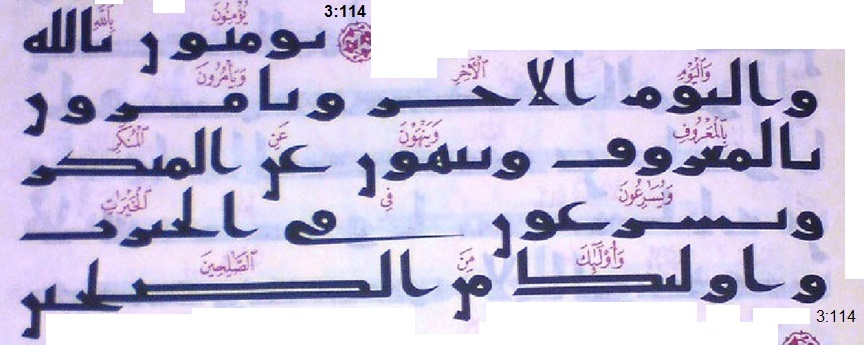 3:114
يُؤْمِنُونَ بِٱللَّهِ
يومنون بالله
وَٱلْيَوْمِ ٱلْأَخِرِ وَيَأْمُرُونَ
واليوم الاخر ويامرون
بِٱلْمَعْرُوفِ وَيَنْهَوْنَ عَنِ ٱلْمُنكَرِ
بالمعروف وينهون عن المنكر
وَيُسَٰرِعُونَ فِى ٱلْخَيْرَٰتِ
ويسرعون في الخيرت
وَأُو۟لَٰٓئِكَ مِنَ ٱلصَّٰلِحِينَ
واوليك من الصلحين
3:114